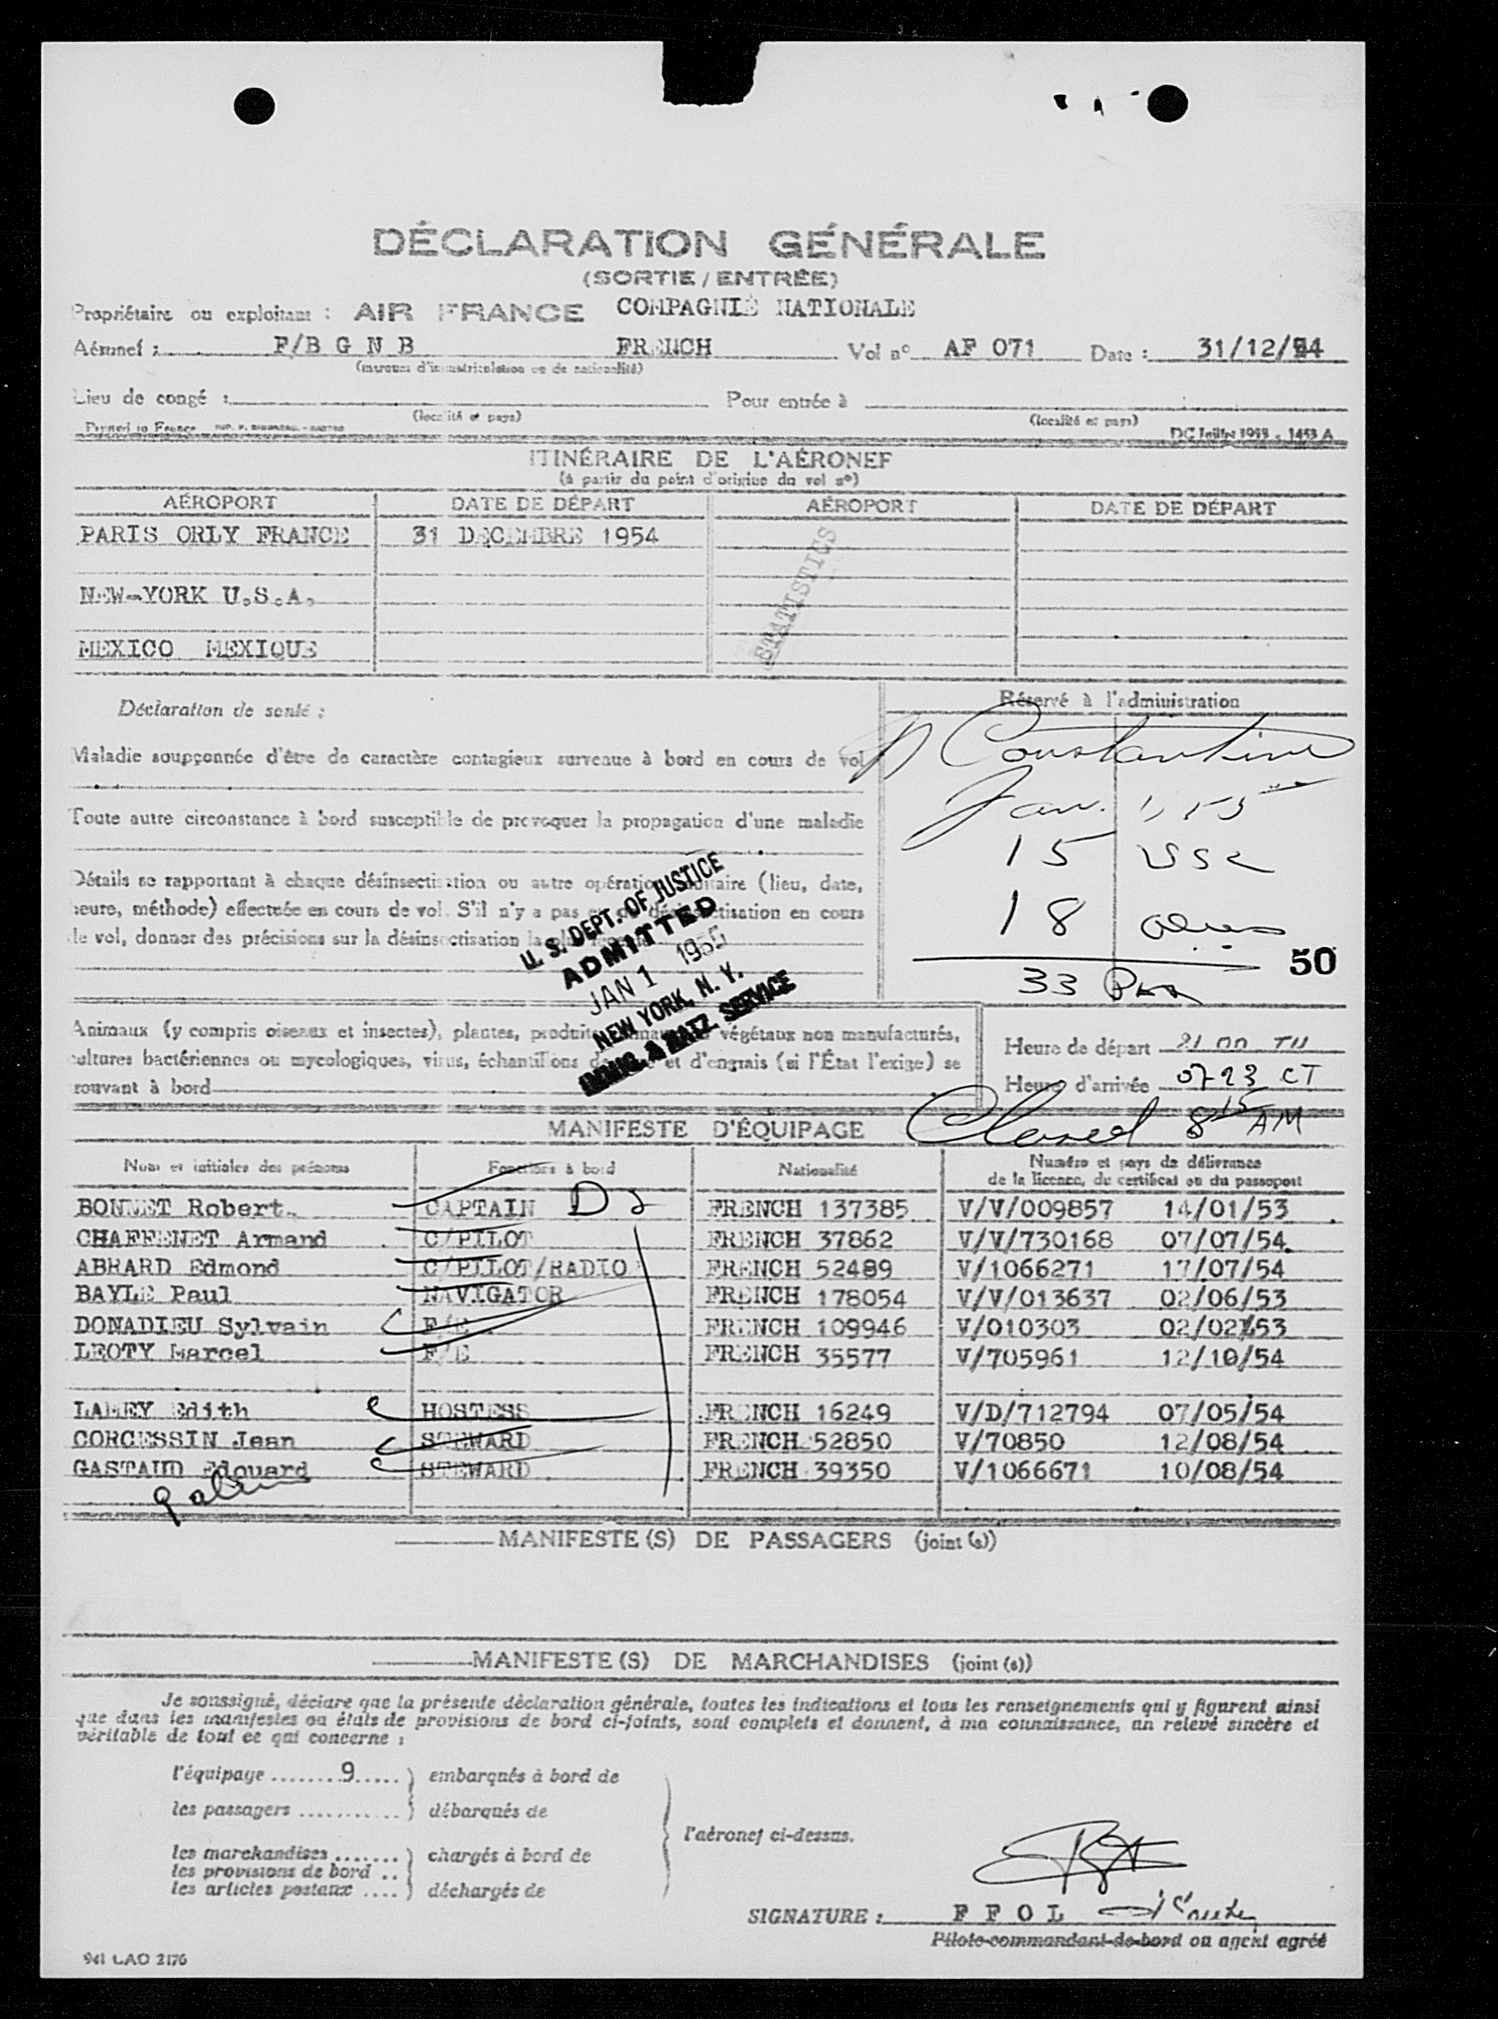 DÉCLARATION GÉNÉRALE
(SORTIE / ENTRÉE)
Propriétaire ou exploitant : AIR FRANCE COMPAGNIE NATIONALE
Aéronef : F/B G N B FRENCH Vol n° AF 071 Date : 31/12/54
(marques d'immatriculation et de nationalité)
Lieu de congé : Pour entrée à
(localité et pays) (localité et pays)
Printed in France DC Juillet 1953 - 1453 A
ITINÉRAIRE DE L'AÉRONEF
(à partir du point d'origine du vol n°)
AÉROPORT DATE DE DÉPART AÉROPORT DATE DE DÉPART
PARIS ORLY FRANCE 31 DECEMBRE 1954
NEW-YORK U.S.A.
MEXICO MEXIQUE
STATISTICS
Déclaration de santé :
Réservé à l'administration
Maladie soupçonnée d'être de caractère contagieux survenue à bord en cours de vol
Constantine
Jan. 1, 55
Toute autre circonstance à bord susceptible de provoquer la propagation d'une maladie
15 USC
Détails se rapportant à chaque désinsectisation ou autre opération sanitaire (lieu, date,
heure, méthode) effectuée en cours de vol. S'il n'y a pas eu de désinsectisation en cours
de vol, donner des précisions sur la désinsectisation la plus récente
18 aliens
50
33 Pax
U. S. DEPT. OF JUSTICE
ADMITTED
JAN 1 1955
NEW YORK, N. Y.
IMMIG. & NATZ. SERVICE
Animaux (y compris oiseaux et insectes), plantes, produits animaux ou végétaux non manufacturés,
cultures bactériennes ou mycologiques, virus, échantillons de et d'engrais (si l'État l'exige) se
trouvant à bord
Heure de départ 21 00 TU
Heure d'arrivée 0723 CT
Closed 8 15 AM
MANIFESTE D'ÉQUIPAGE
Nom et initiales des prénoms Fonctions à bord Nationalité Numéro et pays de délivrance
de la licence, du certificat ou du passeport
BONNET Robert CAPTAIN FRENCH 137385 V/V/009857 14/01/53
CHAFFENET Armand C/PILOT FRENCH 37862 V/V/730168 07/07/54
ABRARD Edmond C/PILOT/RADIO FRENCH 52489 V/1066271 17/07/54
BAYLE Paul NAVIGATOR FRENCH 178054 V/V/013637 02/06/53
DONADIEU Sylvain F/E FRENCH 109946 V/010303 02/02/53
LEOTY Marcel F/E FRENCH 35577 V/705961 12/10/54
LAMEY Edith HOSTESS FRENCH 16249 V/D/712794 07/05/54
CORCESSIN Jean STEWARD FRENCH 52850 V/70850 12/08/54
GASTAUD Edouard STEWARD FRENCH 39350 V/1066671 10/08/54
9 aliens
MANIFESTE(S) DE PASSAGERS (joint (s))
MANIFESTE(S) DE MARCHANDISES (joint (s))
Je soussigné, déclare que la présente déclaration générale, toutes les indications et tous les renseignements qui y figurent ainsi
que dans les manifestes ou états de provisions de bord ci-joints, sont complets et donnent, à ma connaissance, un relevé sincère et
véritable de tout ce qui concerne :
l'équipage ........9..... ) embarqués à bord de
les passagers ............ ) débarqués de
l'aéronef ci-dessus.
les marchandises ....... ) chargés à bord de
les provisions de bord ..
les articles postaux .... ) déchargés de
SIGNATURE : F F O L
Pilote-commandant-de-bord ou agent agréé
941 CAO 2176